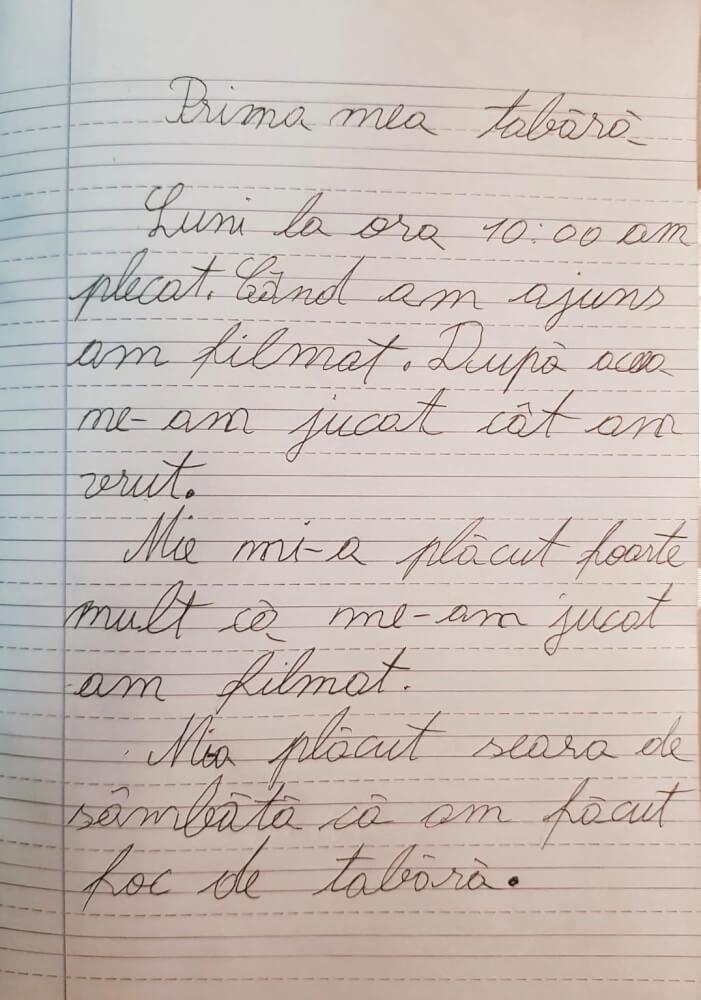 Prima mea tabără
Luni la ora 10:00 am
plecat. Când am ajuns
am filmat. După aceea
ne-am jucat cât am
vrut.
Mie mi-a plăcut foarte
mult că ne-am jucat
am filmat.
Mia plăcut seara de
sâmbătă că am făcut
foc de tabără.